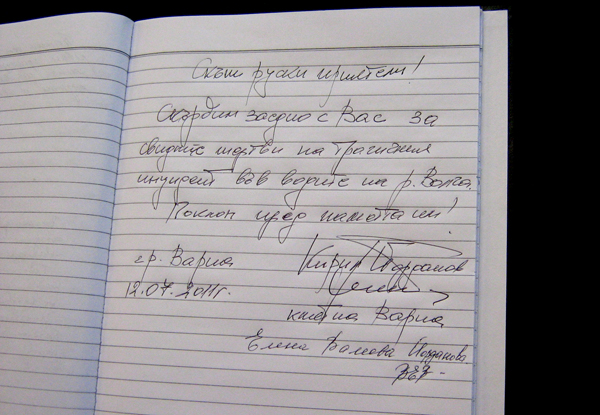 Скъпи руски приятели!
Скърбим заедно с Вас за
свидните жертви на трагичния
инцидент във водите на р. Волга.
Поклон пред паметта им!
гр. Варна
Кирил Йорданов
12.07.2011г.
кмет на Варна
Елена Йорданова